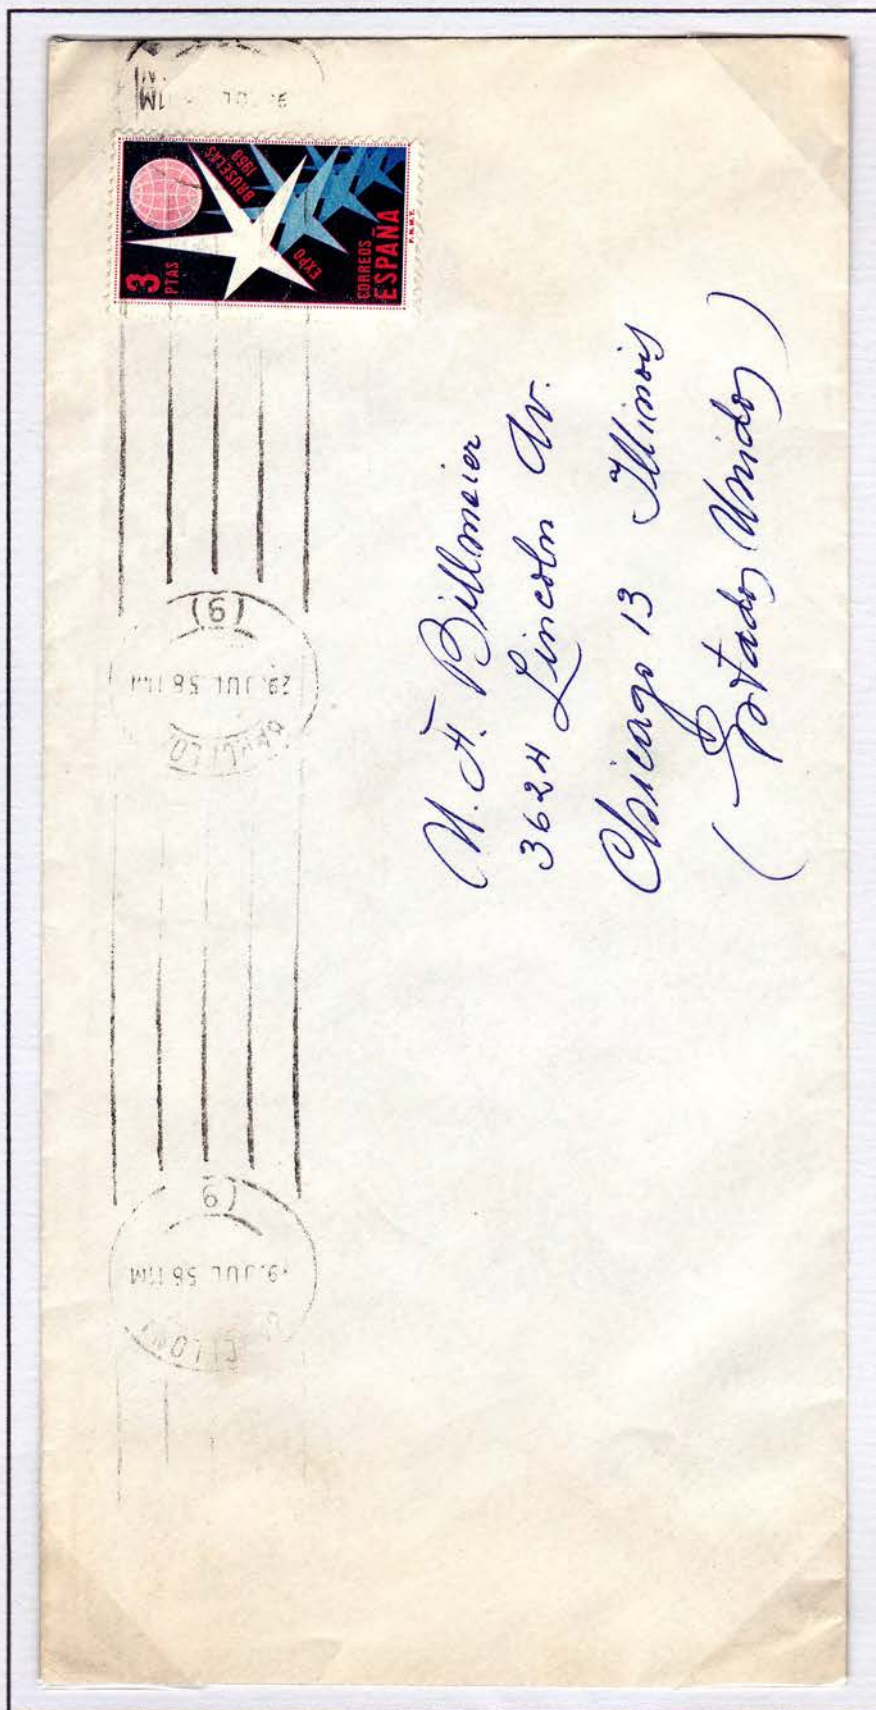 3
PTAS
BRUSELAS
1958
EXPO
CORREOS
ESPAÑA
F.N.M.T.
(9)
29.JUL 58 11M
(9)
9.JUL 58 11M
N. A. Billmeier
3624 Lincoln Av.
Chicago 13 Illinois
(Estados Unidos)